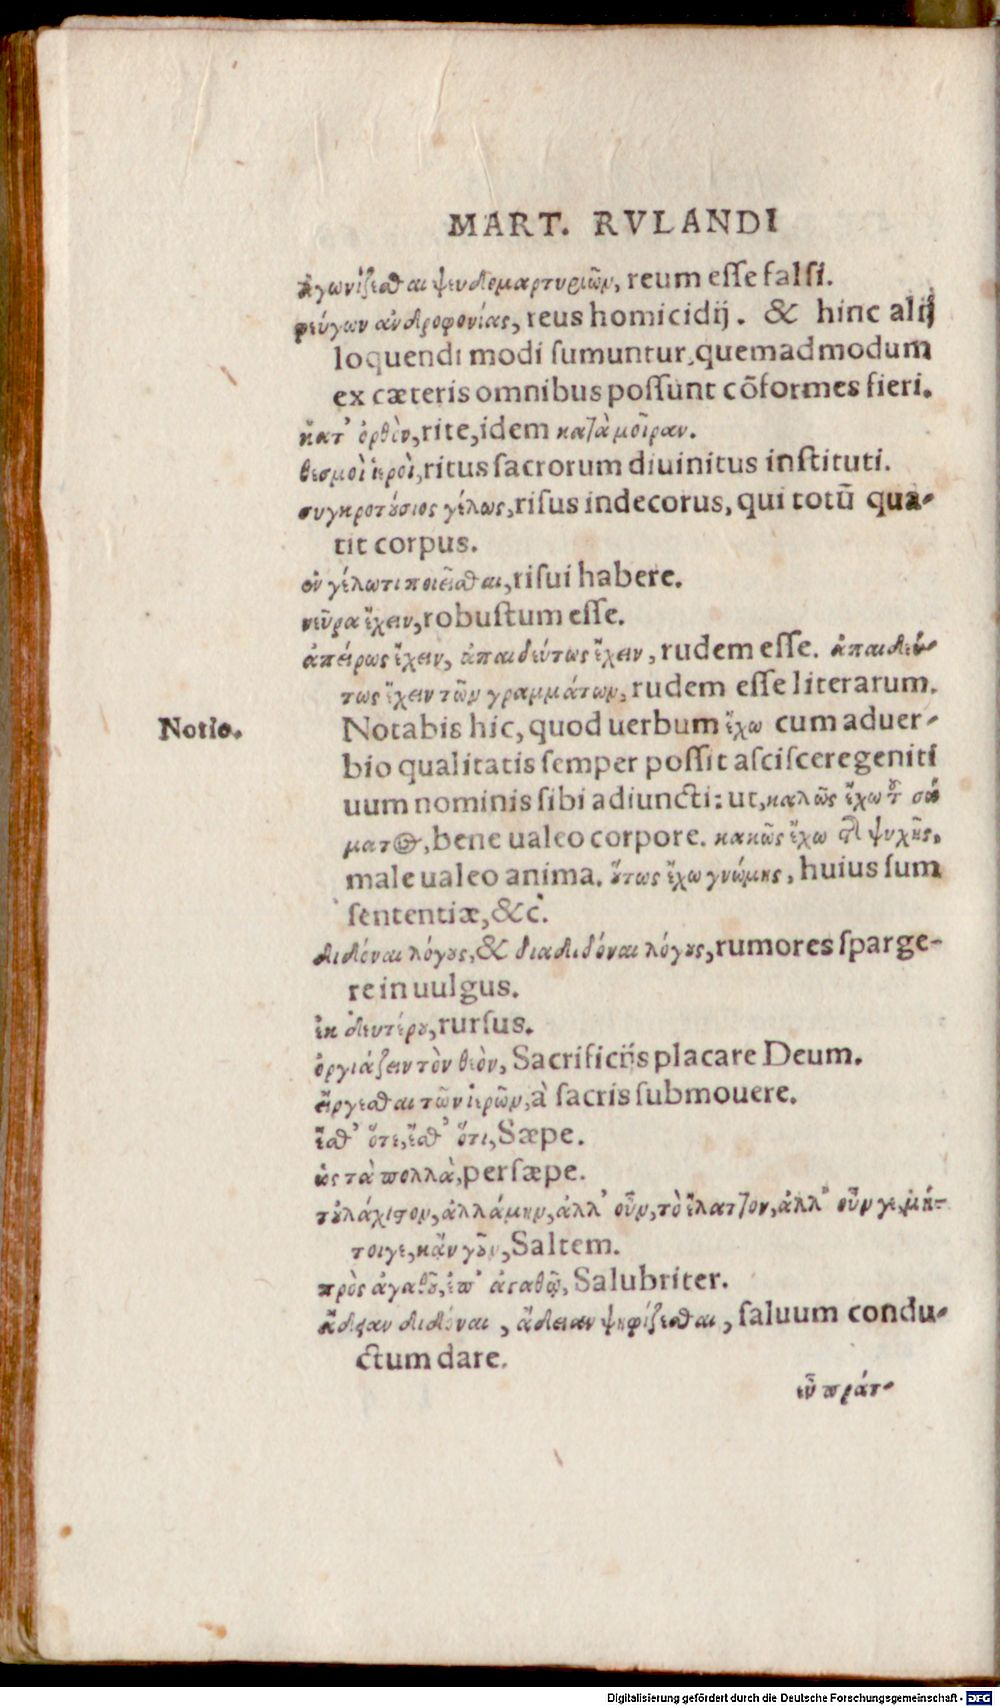 MART. RVLANDI
ἀγωνίζεσθαι ψευδομαρτυριῶν, reum esse falsi.
φεύγων ἀνδροφονίας, reus homicidij. & hinc alij
loquendi modi sumuntur, quemadmodum
ex cæteris omnibus possunt cōformes fieri.
κατ' ὀρθὸν, rite, idem κατὰ μοῖραν.
θεσμοὶ ἱεροὶ, ritus sacrorum diuinitus instituti.
συγκροτούσιος γέλως, risus indecorus, qui totū qua-
tit corpus.
ἐν γέλωτι ποιεῖσθαι, risui habere.
νεῦρα ἔχειν, robustum esse.
ἀπείρως ἔχειν, ἀπαιδεύτως ἔχειν, rudem esse. ἀπαιδεύ-
τως ἔχειν τῶν γραμμάτων, rudem esse literarum.
Notio.
Notabis hic, quod uerbum ἔχω cum aduer-
bio qualitatis semper possit asciscere geniti
uum nominis sibi adiuncti: ut, καλῶς ἔχω τοῦ σώ
ματος, bene ualeo corpore. κακῶς ἔχω τῆς ψυχῆς,
male ualeo anima. οὕτως ἔχω γνώμης, huius sum
sententiæ, &c.
διδόναι λόγους, & διαδιδόναι λόγους, rumores sparge-
re in uulgus.
ἐκ δευτέρου, rursus.
ὀργιάζειν τὸν θεὸν, Sacrificijs placare Deum.
εἴργεσθαι τῶν ἱερῶν, à sacris submouere.
ἔσθ' ὅτε, ἔσθ' ὅτι, Sæpe.
ὡς τὰ πολλὰ, persæpe.
τοὐλάχιστον, ἀλλάμην, ἀλλ' οὖν, τὸ ἔλαττον, ἀλλ' οὖν γε, μή-
τοιγε, κἄν γοῦν, Saltem.
πρὸς ἀγαθοῦ, ἐπ' ἀγαθῷ, Salubriter.
ἄδειαν διδόναι, ἄδειαν ψηφίζεσθαι, saluum condu-
ctum dare.
εὖ πράτ-
Digitalisierung gefördert durch die Deutsche Forschungsgemeinschaft - DFG